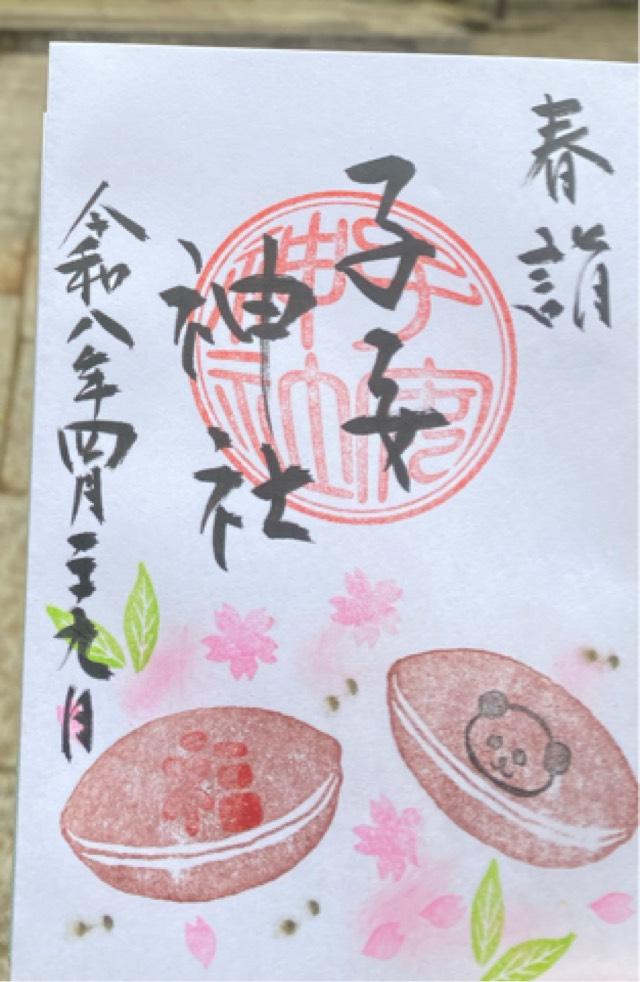 春詣
子安
神社
令和八年四月二十九日
子安
神社